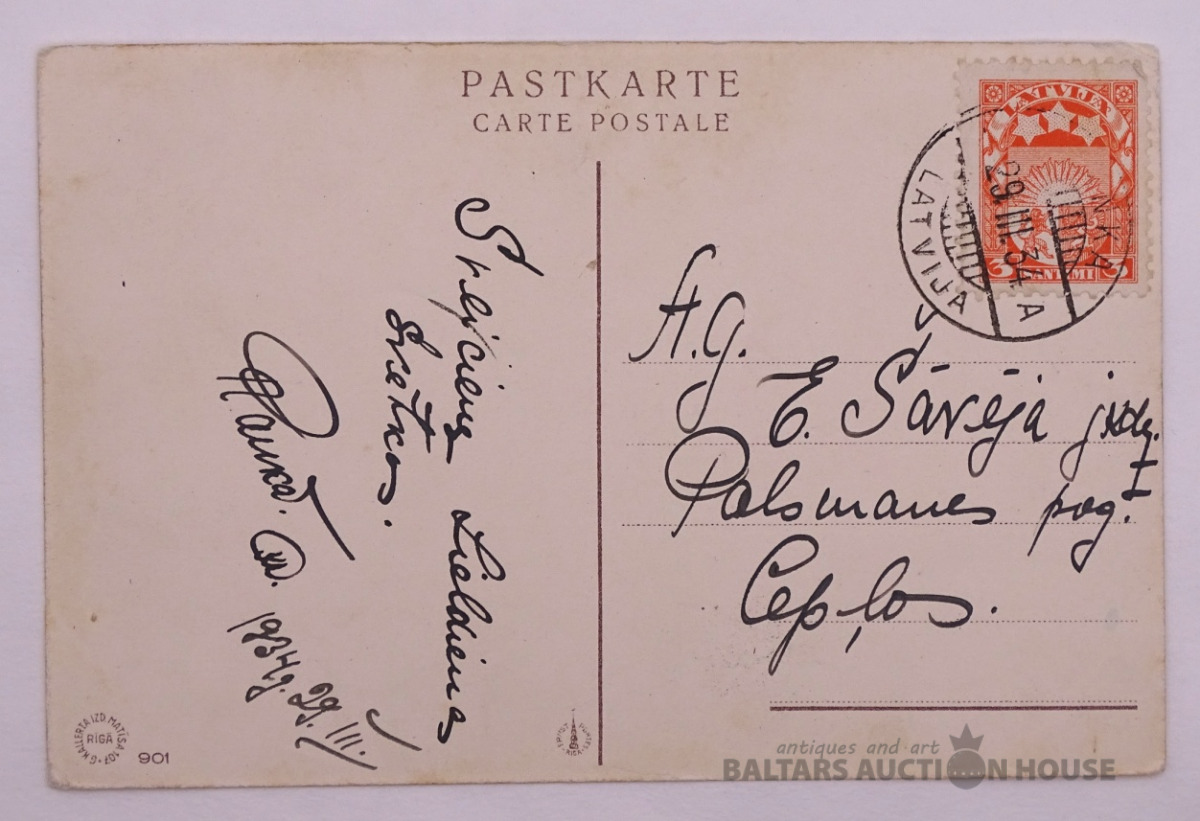 PASTKARTE
CARTE POSTALE
LATVIJA
3 SANTIMI 3
NKA
29.III.34.
LATVIJA
A
Lieldienas
Svētkos.
1934g. 29.III.
A.G.
E. Sāvēja jkdz.
Palsmanes pag.
Cepļos.
G. HALLERTA IZD. MATĪSA 107
RĪGĀ
901
antiques and art
BALTARS AUCTION HOUSE